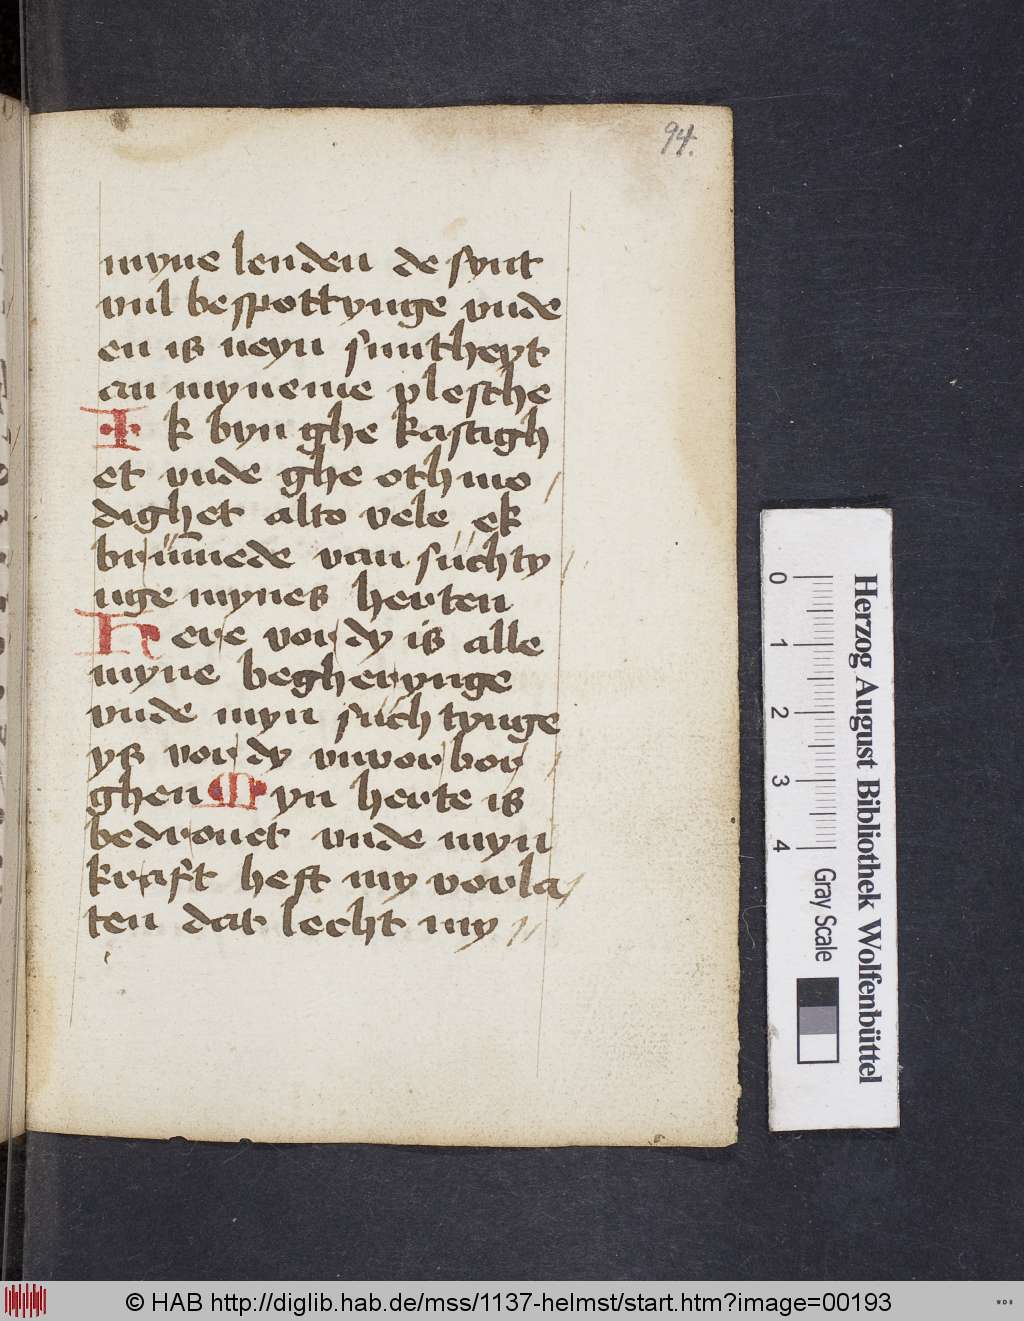 94.
myne lenden de synt
vul bespottynge vnde
en is neyn suntheyt
an myneme vlesche
Ik byn ghe kastigh
et vnde ghe oth mo
dighet alto vele ek
brüm̄ede van süchty
nge mynes herten
Here vor dy is alle
myne begherynge
vnde myn süchtynge
ys vor dy vnvorbor
ghen Myn herte is
bedrouet vnde myn
kraft heft my vorla
ten dat lecht my
Herzog August Bibliothek Wolfenbüttel
0 1 2 3 4 Gray Scale
© HAB http://diglib.hab.de/mss/1137-helmst/start.htm?image=00193